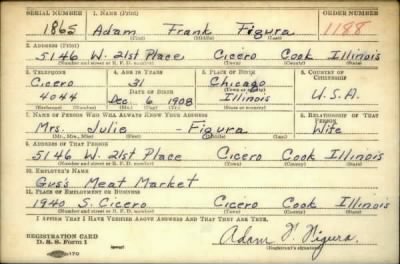 SERIAL NUMBER 1. NAME (Print) ORDER NUMBER
1865 Adam Frank Figura 1188
(First) (Middle) (Last)
2. ADDRESS (Print)
5146 W. 21st Place Cicero Cook Illinois
(Number and street or R. F. D. number) (Town) (County) (State)
3. TELEPHONE 4. AGE IN YEARS 5. PLACE OF BIRTH 6. COUNTRY OF CITIZENSHIP
Cicero 31 Chicago
DATE OF BIRTH (Town or county)
4044 Dec. 6 1908 Illinois U.S.A.
(Exchange) (Number) (Mo.) (Day) (Yr.) (State or country)
7. NAME OF PERSON WHO WILL ALWAYS KNOW YOUR ADDRESS 8. RELATIONSHIP OF THAT PERSON
Mrs. Julie - Figura Wife
(Mr., Mrs., Miss) (First) (Middle) (Last)
9. ADDRESS OF THAT PERSON
5146 W. 21st Place Cicero Cook Illinois
(Number and street or R. F. D. number) (Town) (County) (State)
10. EMPLOYER'S NAME
Gus's Meat Market
11. PLACE OF EMPLOYMENT OR BUSINESS
1940 S. Cicero Cicero Cook Illinois
(Number and street or R. F. D. number) (Town) (County) (State)
I AFFIRM THAT I HAVE VERIFIED ABOVE ANSWERS AND THAT THEY ARE TRUE.
REGISTRATION CARD
D. S. S. Form 1 Adam F. Figura.